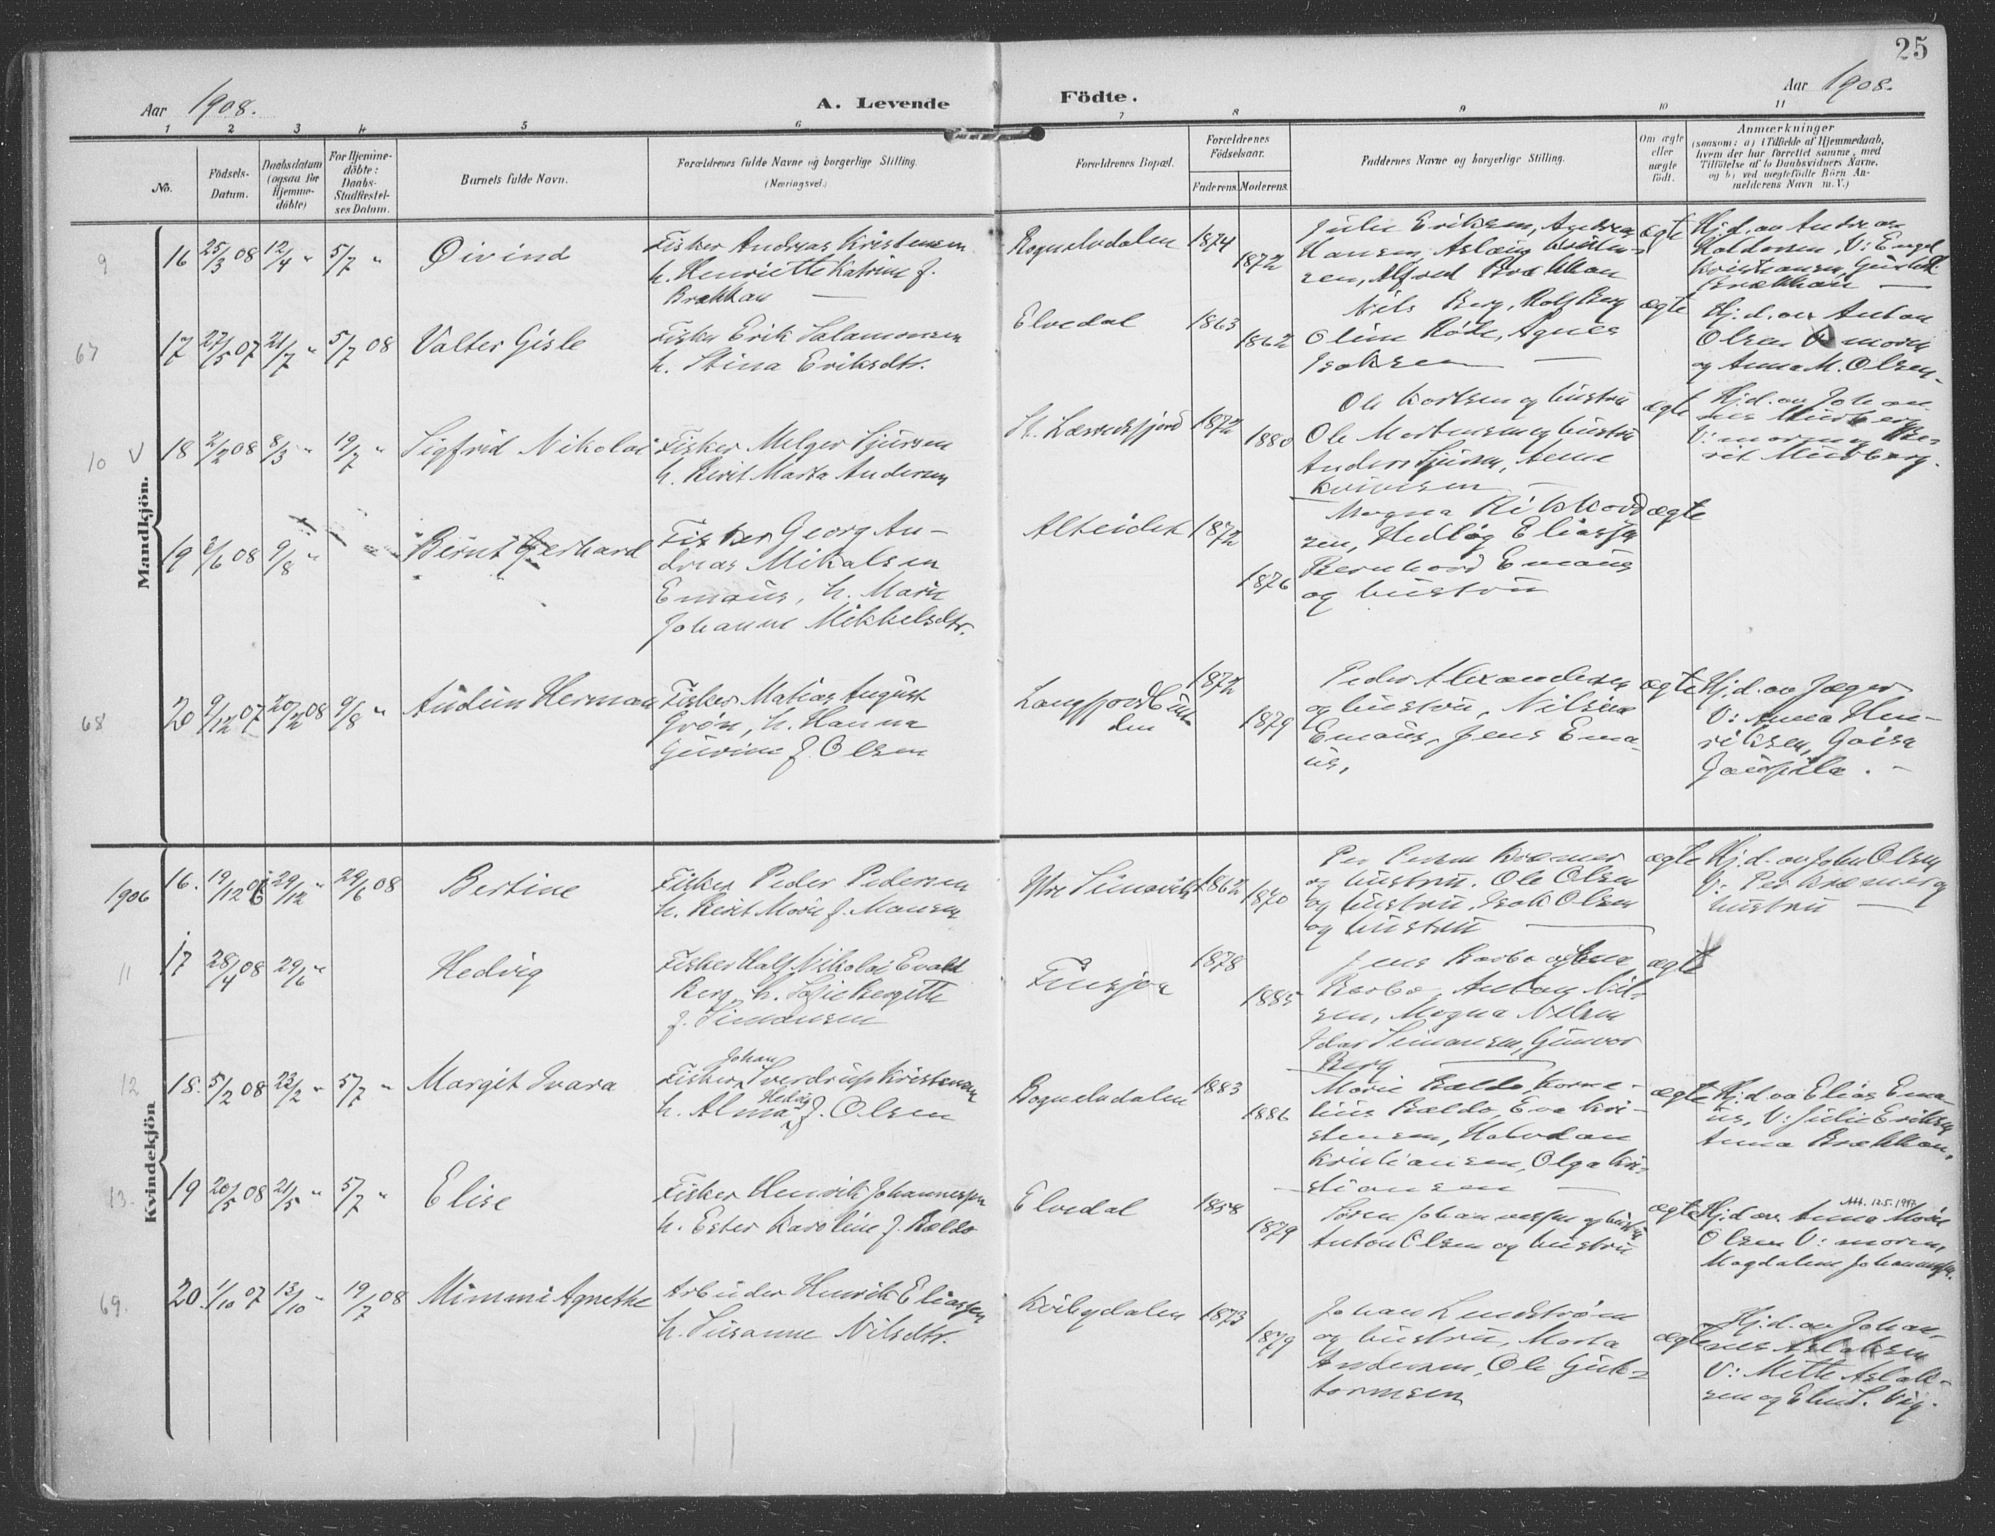 25
Aar 1908.
A. Levende Födte.
Aar 1908.
1 2 3 4 5 6 7 8 9 10 11
No.
Födsels-
Datum.
Daabsdatum
(ogsaa for
Hjemme-
döbte)
For Hjemme-
döbte:
Daabs-
Stadfæstel-
ses Datum.
Barnets fulde Navn.
Forældrenes fulde Navne og borgerlige Stilling.
(Næringsvei.)
Forældrenes Bopæl.
Forældrenes
Födselsaar.
Faderens. Moderens.
Faddernes Navne og borgerlige Stilling.
Om ægte
eller
uægte
födt.
Anmærkninger
(saasom: a) i Tilfælde af Hjemmedaab,
hvem der har forrettet samme, med
Tilföielse af to Daabsvidners Navne,
og b) ved uægtefödte Börn An-
melderens Navn m. V.)
Mandkjön.
9 16 25/3 08 12/4 " 5/7 " Øivind
Fisker Andreas Kristensen
h. Henriette Katrine f.
Brækkan
Bognelvdalen 1874 1872
Julie Eriksen, Andrea
Hansen, Aslaug
sen, Alfred Brækkan
ægte
Hj.d. av Andreas
Haldorsen, V: Engel
Kristiansen,
Brækkan
67 17 27/5 07 21/7 " 5/7 08 Valter Gisle
Fisker Erik Salamonsen
h. Stina Eriksdtr.
Elvedal 1863 1862
Nils Berg, Rolf Berg
Oline Røde, Agnes
Isaksen
ægte
Hj.d. av Anton
Olsen V moren
og Anna M. Olsen.
10 V 18 2/2 08 8/3 " 19/7 " Sigfrid Nikolai
Fisker Melger Sjursen
h. Berit Marta Andersen
St. Lerresfjord 1872 1880
Ole Kortsen og hustru
Ole Mortensen og hustru
Anders Sjursen, Anne
ægte
Hj.d. av Johan-
nes
V: moren og Be-
rit
19 2/6 08 9/8 " Bernt Gerhard
Fisker Georg An-
dreas Mikalsen
Emaus, h. Marie
Johanne Mikkelsdtr.
Alteidet 1872 1876
Magna Rikhard
sen, Hedlög Eliassen
Bernhard Emaus
og hustru
ægte
68 20 9/12 07 20/2 08 9/8 " Audun Herman
Fisker Matias August
Grøn, h. Hanna
Gurine f. Olsen
Langfjordbun
den
1872 1879
Peder Alexandersen
og hustru, Nilsine
Emaus, Jens Ema-
us,
ægte
Hj.d. av Jæger
V: Anna Hen-
riksen,
Kvindekjön
1906 16. 19/12 06 29/12 " 29/6 08 Bertine
Fisker Peder Pedersen
h. Berit Marie f. Mansen
1862 1870
Per Persen Kræmer
og hustru. Ole Olsen
og hustru. Isak Olsen
og hustru
ægte
Hj.d. av John Olsen
V: Per Kræmer og
hustru
11 17 28/4 08 29/6 " Hedvig
Fisker Half Nikolai Evald
Berg, h. Sofie Bergitte
f. Simonsen
1878 1885
Jens Barbo og
Barbo, Anton Nil-
sen, Magna Nilsen
Idar Simonsen, Gunvor
Berg
ægte
12 18. 5/2 08 23/2 " 5/7 " Margit Ivara
Fisker Johan Sverdrup Kristensen
h. Alma Hedvig f. Olsen
Bognelvdalen 1883 1886
Marie Baldo, Korne-
lius Baldo, Eva Kri-
stensen, Halvdan
Kristiansen, Olga Kri-
stiansen
ægte
Hj.d. av Elias Ema-
us, V: Julie Eriksen
Anna Brækkan.
13. 19 20/5 08 21/5 " 5/7 " Elise
Fisker Henrik Johannessen
h. Ester Karoline f. Baldo
Elvedal 1858 1879
Søren Johannessen og hustru
Anton Olsen og hustru
ægte
Att. 12.5.1947
Hj.d. av Anna Marie
Olsen V: moren,
Magdalene Johannessen.
69. 20. 1/10 07 13/10 " 19/7 08 Mimmi Agnethe
Arbeider Henrik Eliassen
h. Susanne Nilsdtr.
Kvibydalen 1873 1879
Johan Lundstrøm
og hustru, Marta
Andersen, Ole Gut-
tormsen
ægte
Hj.d. av Johan-
nes Aslaksen
V: Mette Aslak-
sen og